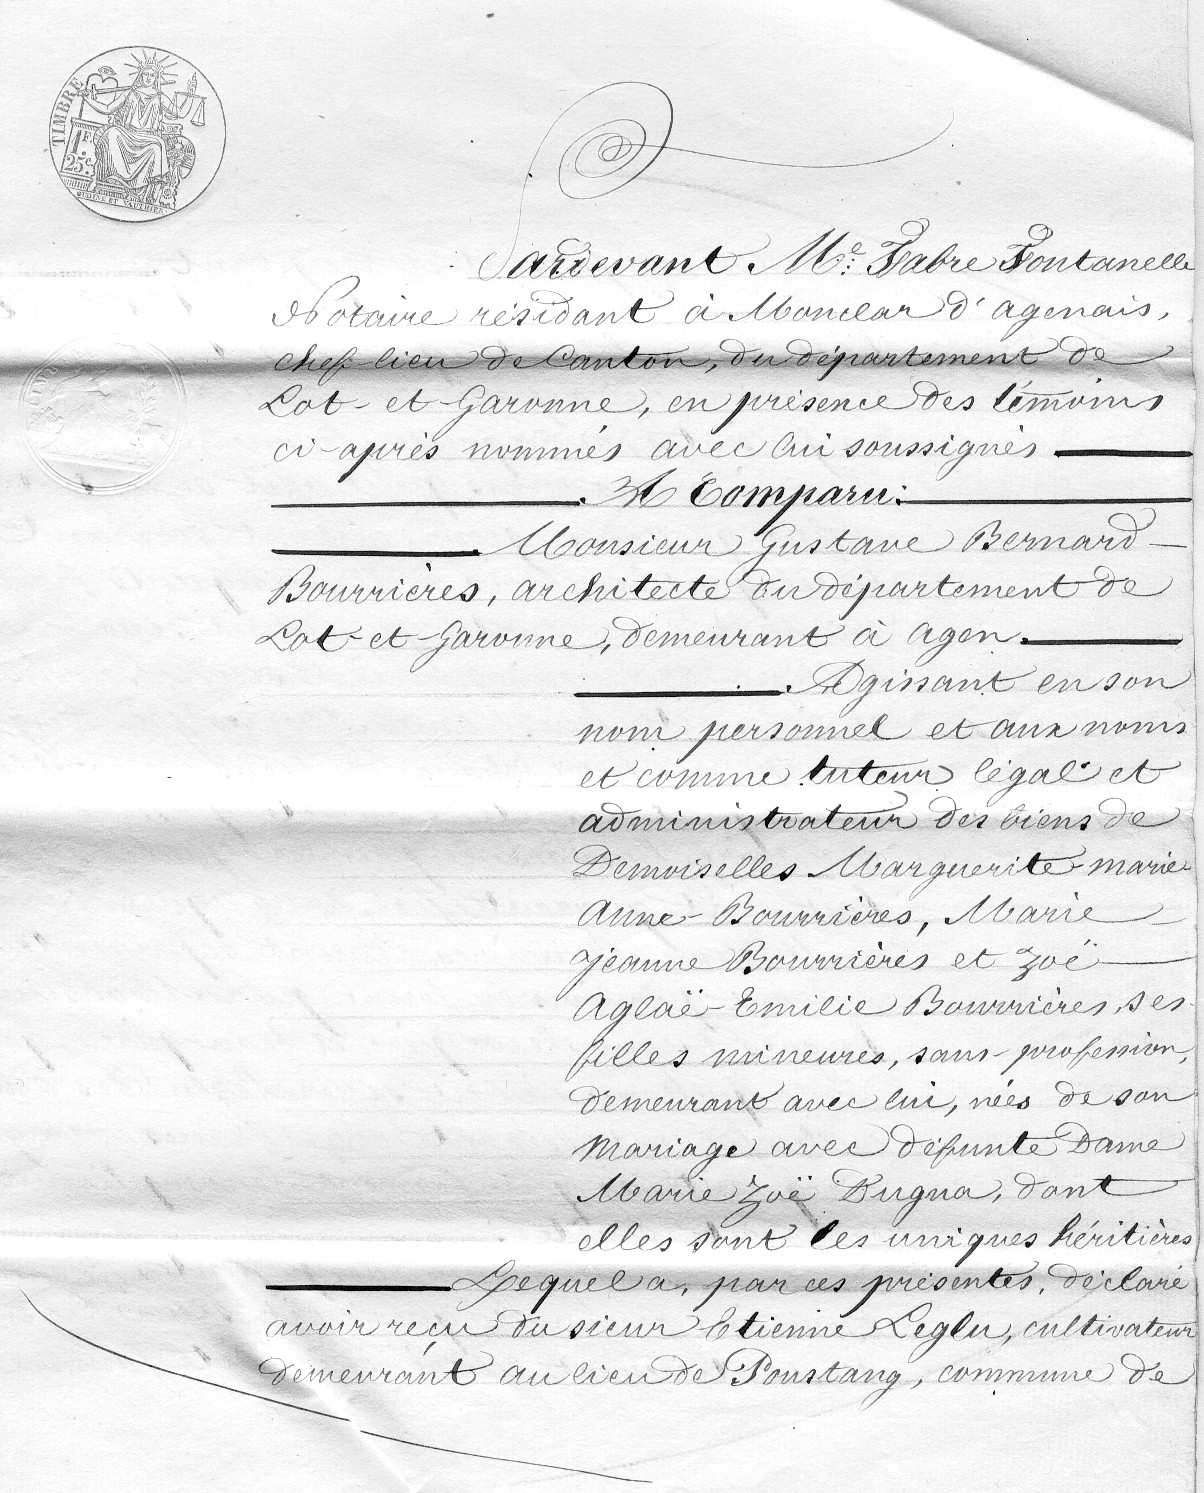 TIMBRE
1F.
25c.
OUDINÉ ET VAUTHIER.
Pardevant Me: Fabre Fontanelle
Notaire résidant à Monclar d'agenais,
chef-lieu de Canton, du département de
Lot-et-Garonne, en présence des témoins
ci-après nommés avec lui soussignés
A Comparu:
Monsieur Gustave Bernard-
Bourrières, architecte du département de
Lot-et-Garonne, demeurant à agen.
Agissant en son
nom personnel et aux noms
et comme tuteur légal et
administrateur des biens de
Demoiselles Marguerite-marie-
Anne-Bourrières, Marie
Jeanne Bourrières et Zoë
Aglaë-Emilie Bourrières, ses
filles mineures, sans profession,
demeurant avec lui, nées de son
mariage avec défunte Dame
Marie Zoë Dugua, dont
elles sont les uniques héritières
Lequel a, par ces présentes, déclaré
avoir reçu du sieur Etienne Leglu, cultivateur
demeurant au lieu de Poustang, commune de